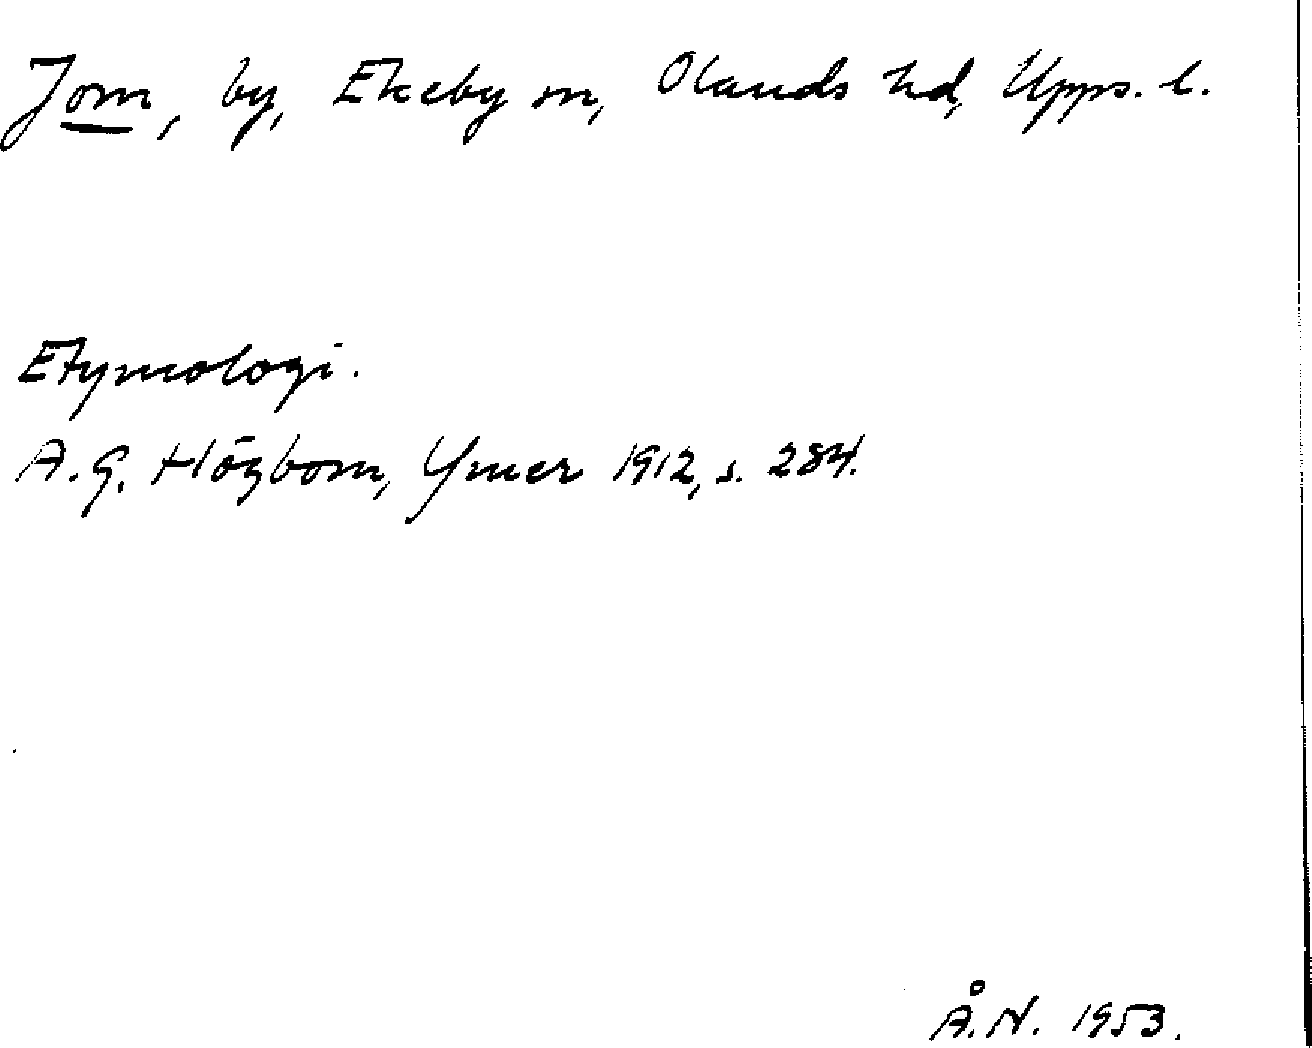 Jom, by, Ekeby sn, Olands hd, Upps. l.
Etymologi.
A.G. Högbom, Ymer 1912, s. 284.
Å.N. 1953.